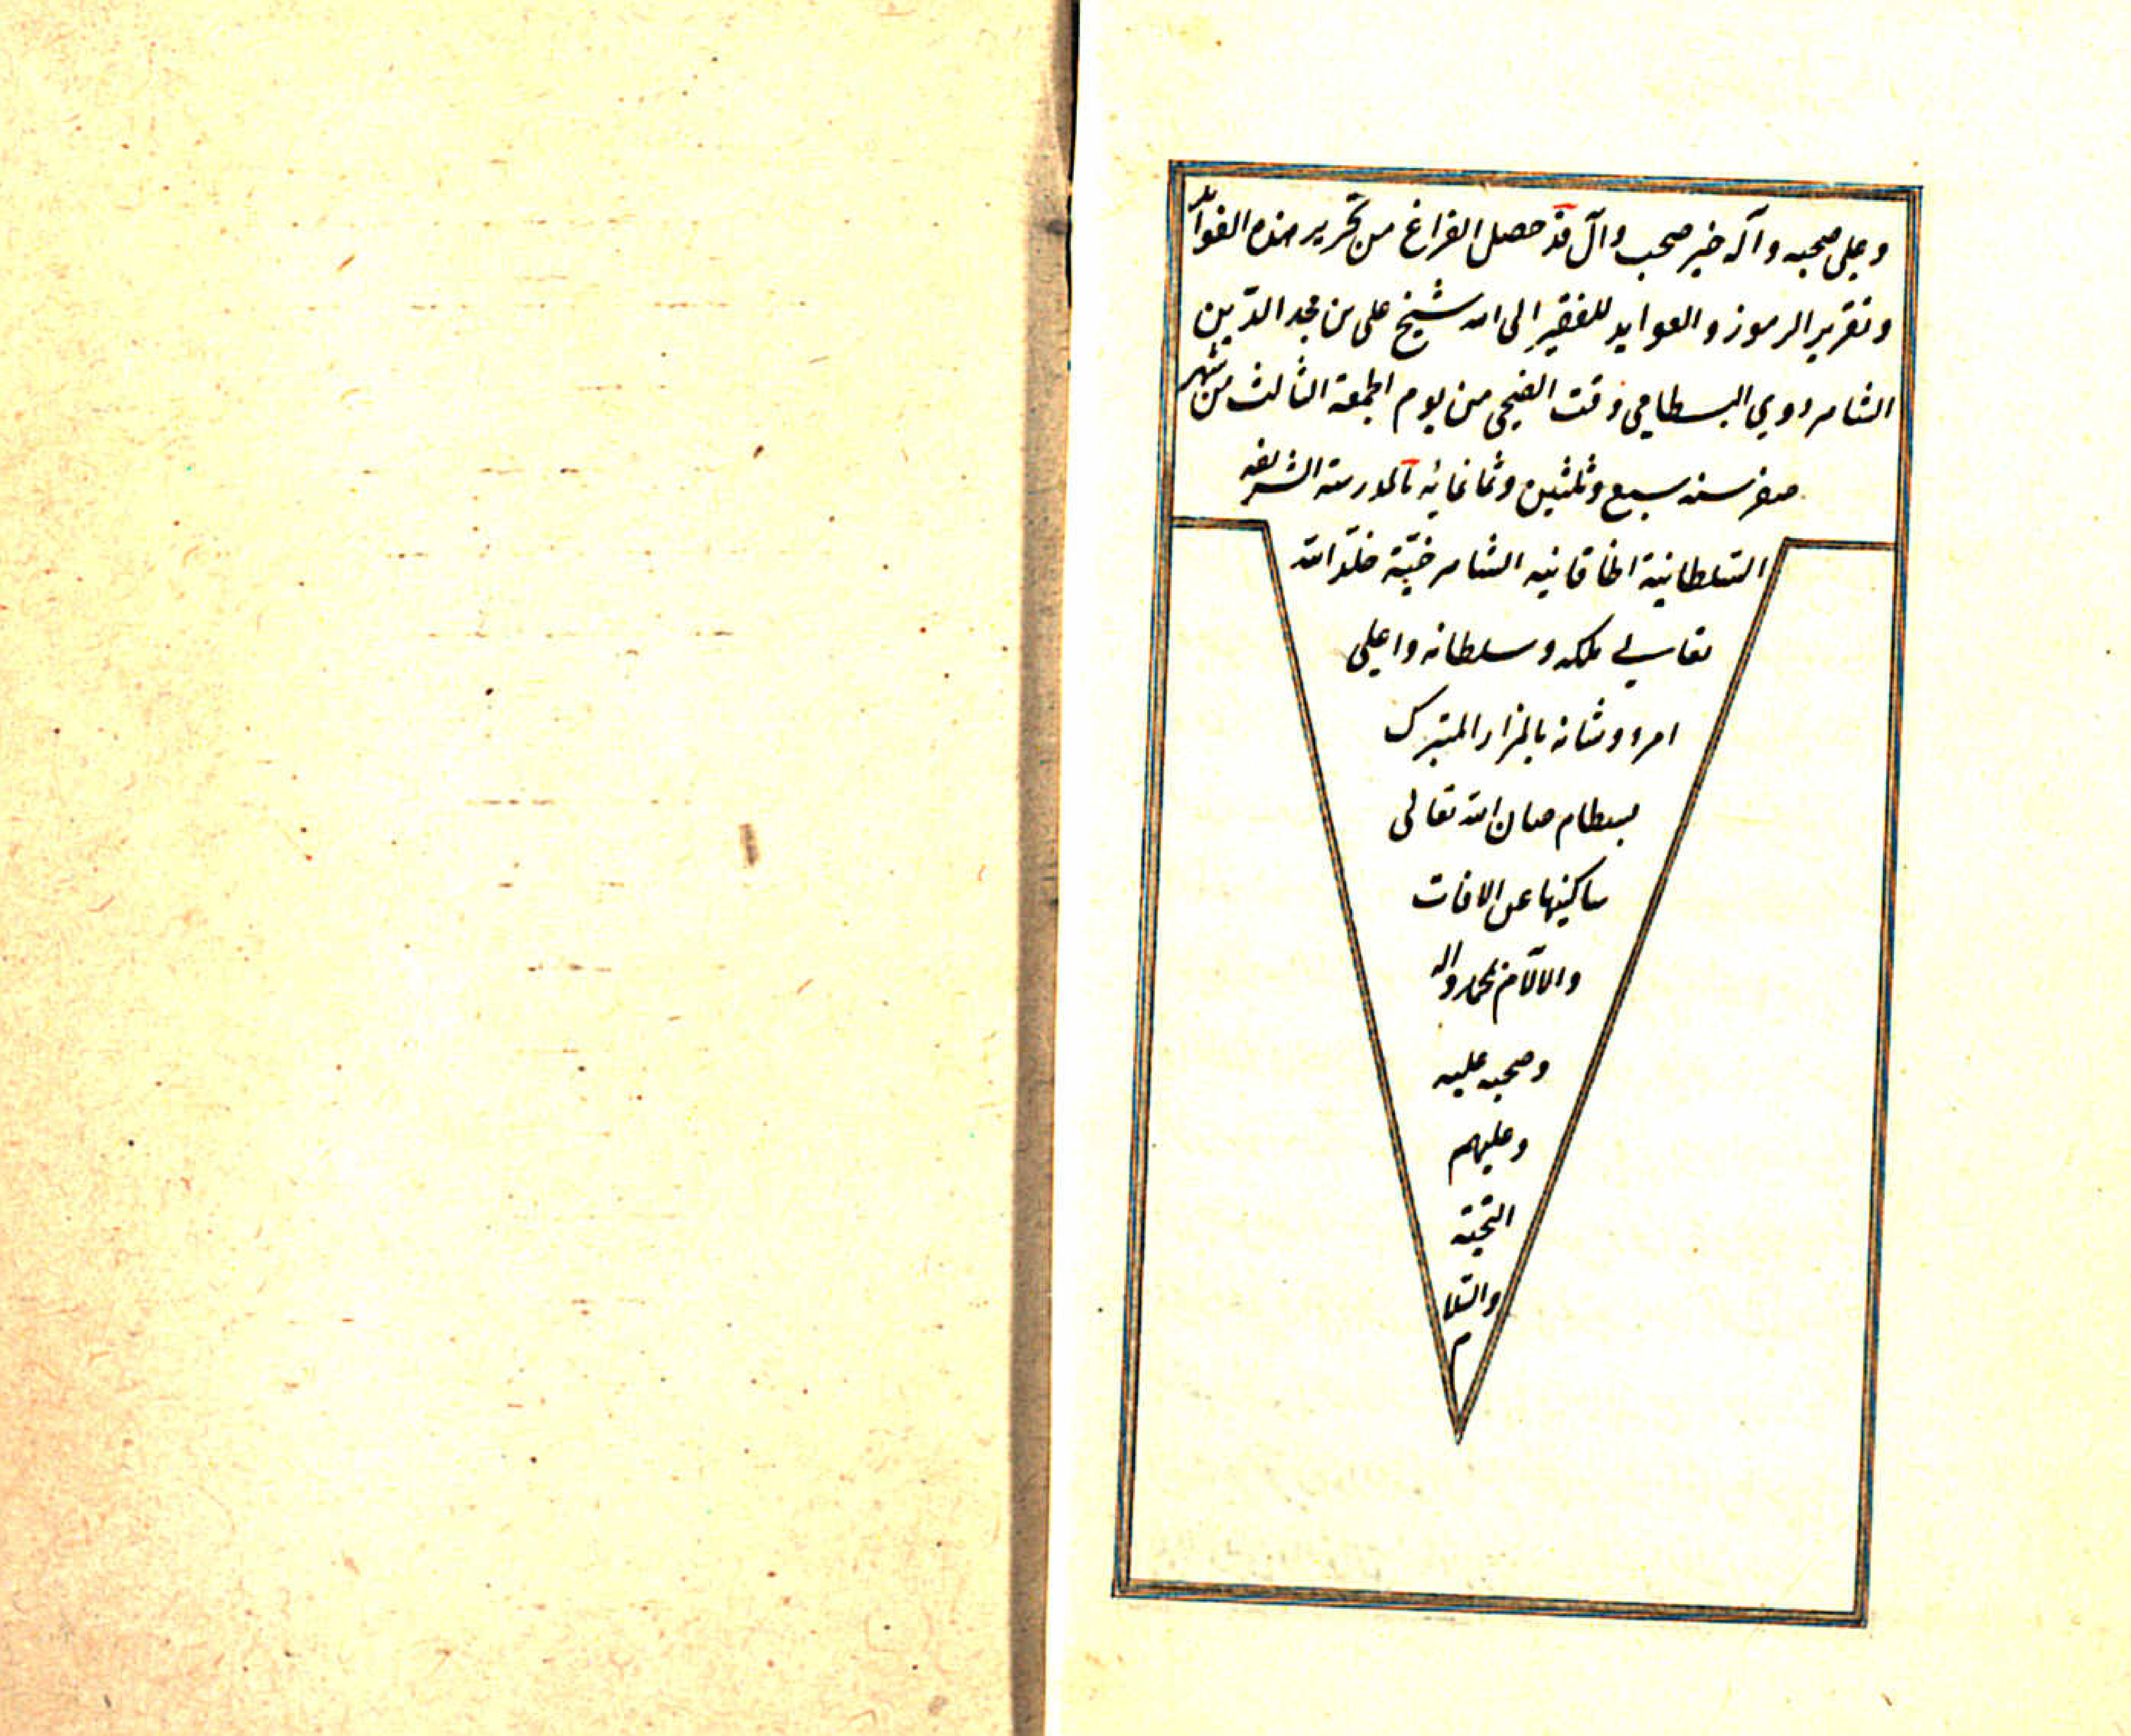 وعلى صحبه وآله خير صحب وآل قد حصل الفراغ من تحرير هذه الفوائد
وتقرير الرموز والعوايد للفقير الى الله شيخ على بن مجد الدّين
الشاهرودي البسطامي وقت الضحى من يوم الجمعة الثالث من شهر
صفر سنه سبع وثلثين وثمانمايه بالمدرسة الشريفه
السّلطانية الخاقانيه الشاهرخيّة خلّد الله
تعالى ملكه وسلطانه واعلى
امره وشانه بالمزار المتبرك
ببسطام صان الله تعالى
ساكنيها عن الافات
والالآم بمحمد واله
وصحبه عليه
وعليهم
التحيّة
والسّلا
م